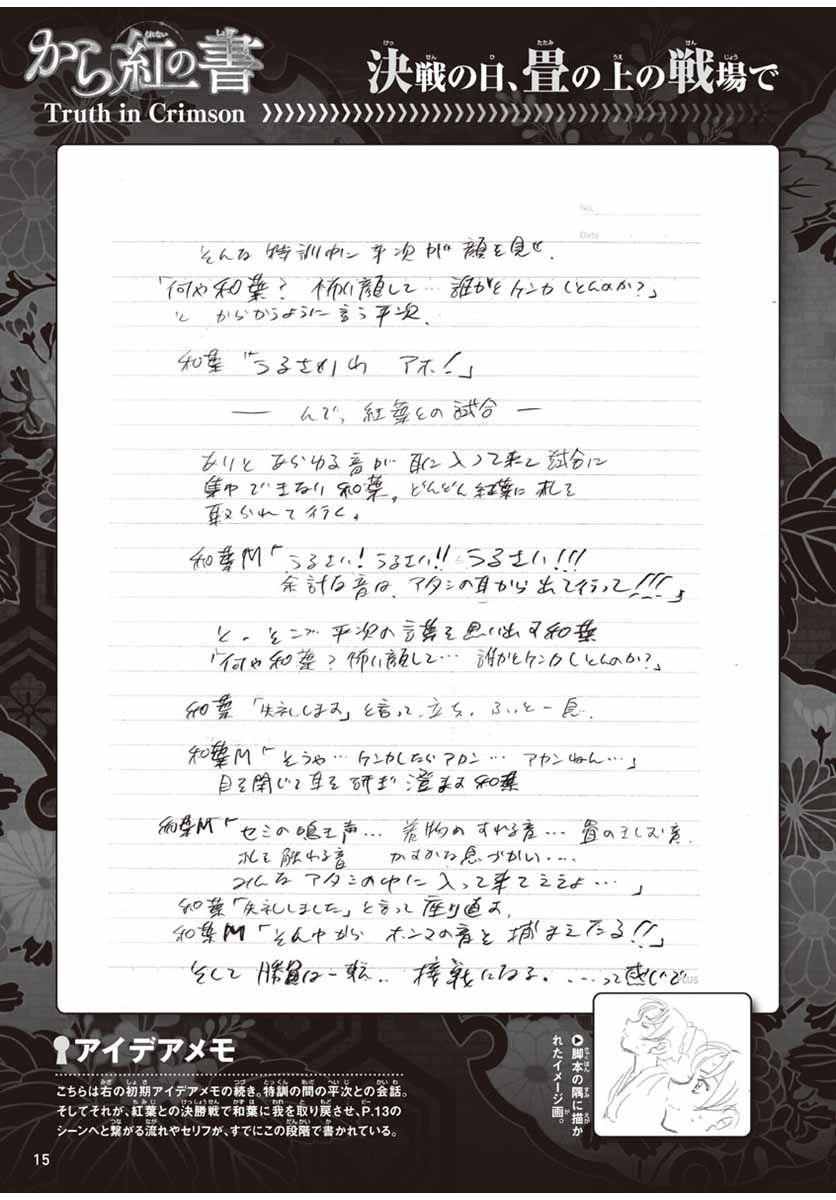 から紅の書
Truth in Crimson
決戦の日、畳の上の戦場で
No.
Date
そんな特訓中に平次が顔を見せ、
「何や和葉? 怖い顔して… 誰かとケンカしとんのか?」
と からかうように言う平次、
和葉「うるさいわ アホ!」
— んで、紅葉との試合 —
ありと あらゆる音が 耳に入って来て試合に
集中できない和葉。どんどん紅葉に札を
取られて行く。
和葉M「うるさい! うるさい!! うるさい!!!
余計な音は、アタシの耳から出て行って!!!」
と、そこで平次の言葉を思い出す和葉
「何や和葉? 怖い顔して… 誰かとケンカしとんのか?」
和葉「失礼します」と言って立ち、ふぅと一息、
和葉M「そうや… ケンカしたらアカン… アカンねん…」
目を閉じて耳を研ぎ澄ます和葉
和葉M「セミの鳴き声… 着物のすれる音… 畳のきしむ音、
札を触わる音 かすかな息づかい‥‥
みんなアタシの中に入って来てええよ…」
和葉「失礼しました」と言って座り直す、
和葉M「そん中から ホンマの音を捕まえたる!!」
そして勝負は一転‥ 接戦になる、…って感じで
アイデアメモ
こちらは右の初期アイデアメモの続き。特訓の間の平次との会話。
そしてそれが、紅葉との決勝戦で和葉に我を取り戻させ、P.13の
シーンへと繋がる流れやセリフが、すでにこの段階で書かれている。
▶脚本の隅に描か
れたイメージ画。
15